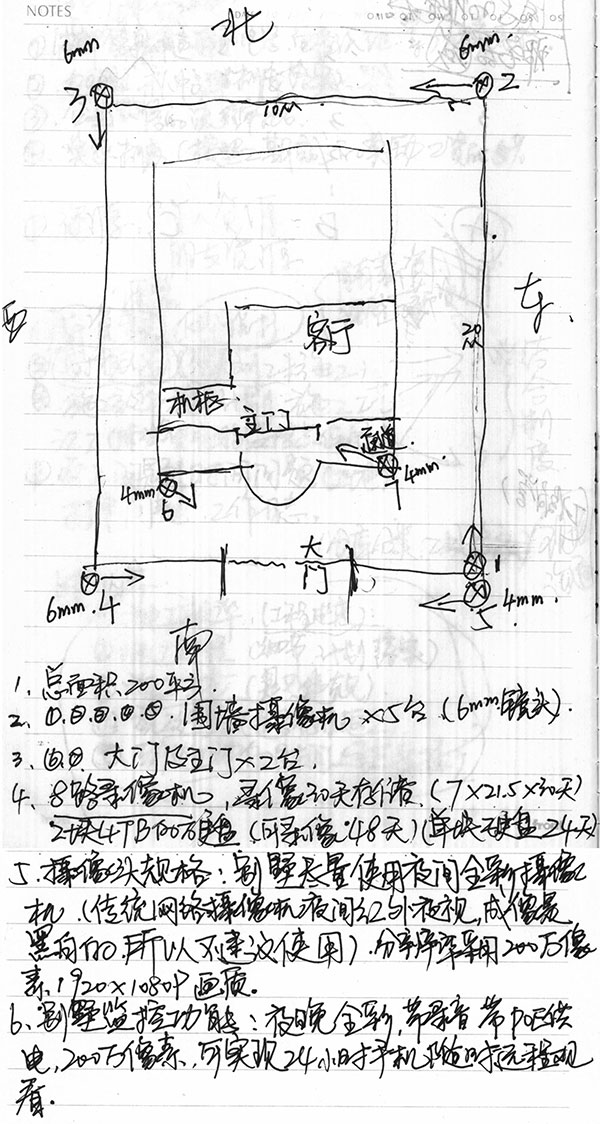 NOTES
北
6mm
6mm
3
2
10M
西
东
20M
客厅
机柜
主门
4mm
6
4mm
7
大门
1
6mm 4
5 4mm
南
1、总面积200平方
2、①.②.③.④.⑤.围墙摄像机×5台.(6mm镜头).
3、⑥.⑦. 大门及主门×2台.
4、8路录像机,录像30天存储.(7×21.5×30天)
2块4TB的硬盘(可录像48天)(单块硬盘24天)
5、摄像头规格:别墅尽量使用夜间全彩摄像
机.(传统网络摄像机夜间红外夜视,成像是
黑白的.所以不建议使用).分辨率采用200万像
素.1920×1080P画质.
6、别墅监控功能:夜晚全彩,带录音带POE供
电,200万像素,可实现24小时手机随时远程观
看.